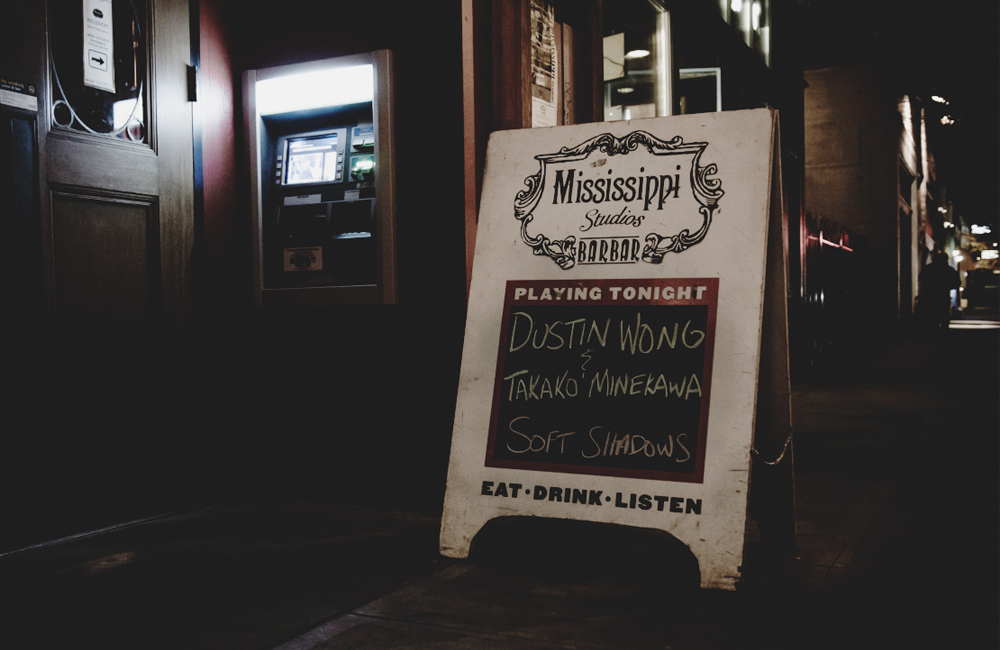 Mississippi
Studios
BARBAR
PLAYING TONIGHT
DUSTIN WONG
&
TAKAKO MINEKAWA
SOFT SHADOWS
EAT · DRINK · LISTEN